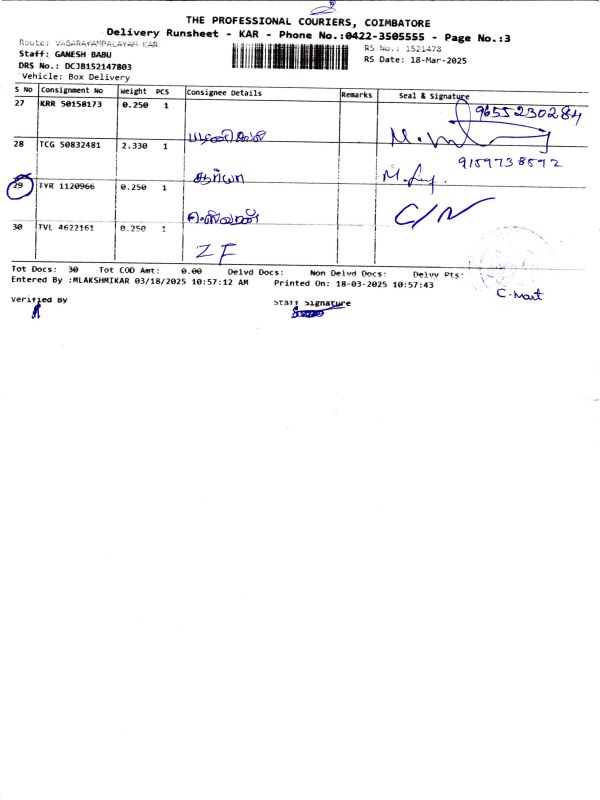 THE PROFESSIONAL COURIERS, COIMBATORE
Delivery Runsheet - KAR - Phone No.:0422-3505555 - Page No.:3
Route: VAGARAYAMPALAYAM KAR
Staff: GANESH BABU
RS No.: 1521478
DRS No.: DCJB152147803
RS Date: 18-Mar-2025
Vehicle: Box Delivery
S No Consignment No Weight PCS Consignee Details Remarks Seal & Signature
27 KRR 50158173 0.250 1 பழனிசாமி 9655230284
28 TCG 50832481 2.330 1 சூர்யா 9159738592
29 TYR 1120966 0.250 1 C/N
30 TVL 4622161 0.250 1 ZF
Tot Docs: 30 Tot COD Amt: 0.00 Delvd Docs: Non Delvd Docs: Delvy Pts:
Entered By :MLAKSHMIKAR 03/18/2025 10:57:12 AM Printed On: 18-03-2025 10:57:43
C-Mart
Verified By Staff Signature